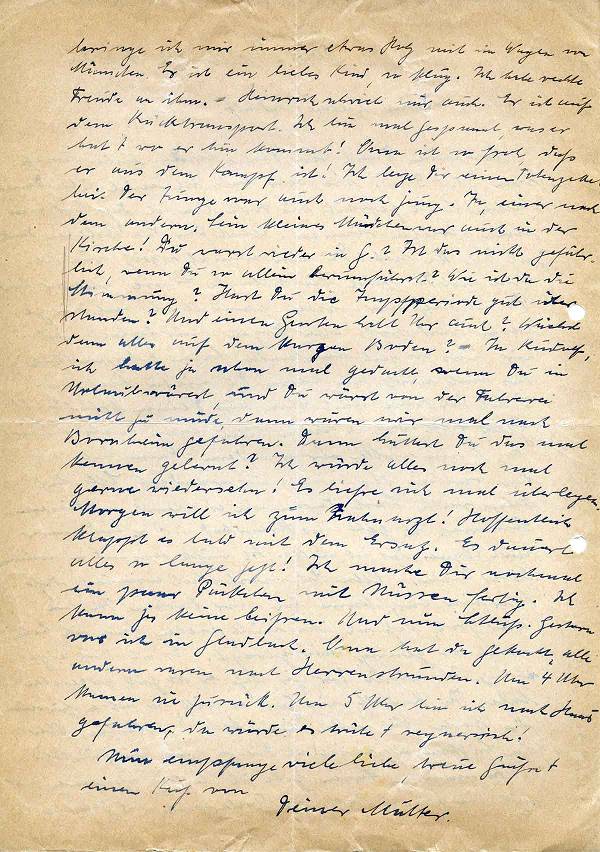 bringe ich mir immer etwas Holz mit im Wagen von
München. Er ist ein liebes Kind, so klug. Ich habe rechte
Freude an ihm. = Heinrich schrieb mir auch. Er ist auf
dem Rücktransport. Ich bin mal gespannt, was er
hat + wo er hin kommt! Oma ist so froh, daß
er aus dem Kampf ist! Ich lege Dir einen Totenzettel
bei. Der Junge war auch noch jung. Ja, einer nach
dem andern. Ein kleines Mädchen war auch in der
Kirche! Du warst wieder in G.? Ist das nicht gefähr-
lich, wenn Du so allein herumfährst? Wie ist da die
Stimmung? Hast Du die Impfperiode gut über
standen? Und einen Garten habt Ihr auch? Wächst
denn alles auf dem Boden? = Ja Rudolf,
ich hatte ja schon mal gedacht, wenn Du in
Urlaub wärest, und Du wärst von der Fahrerei
nicht zu müde, dann wären wir mal nach
Bornheim gefahren. Dann hättest Du das mal
kennen gelernt? Ich würde alles noch mal
gerne wiedersehn! Es ließe sich mal überlegen.
Morgen will ich zum Zahnarzt! Hoffentlich
klappt es bald mit dem Ersatz. Es dauert
alles so lange jetzt! Ich mache Dir nochmal
ein paar Päckchen mit Nüssen fertig. Ich
kann ja keine beißen. Und nun Schluß. Gestern
war ich in Gladbach. Oma hat da gekocht, alle
andern waren nach Herrenstrunden. Um 4 Uhr
kamen sie zurück. Um 5 Uhr bin ich nach Haus
gefahren, da wurde es trübe + regnerisch!
Nun empfange viele liebe, treue Grüße +
einen Kuß von
Deiner Mutter.